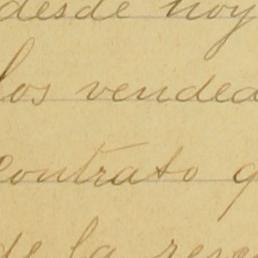 desde hoy
los vended
contrato q
de la resc